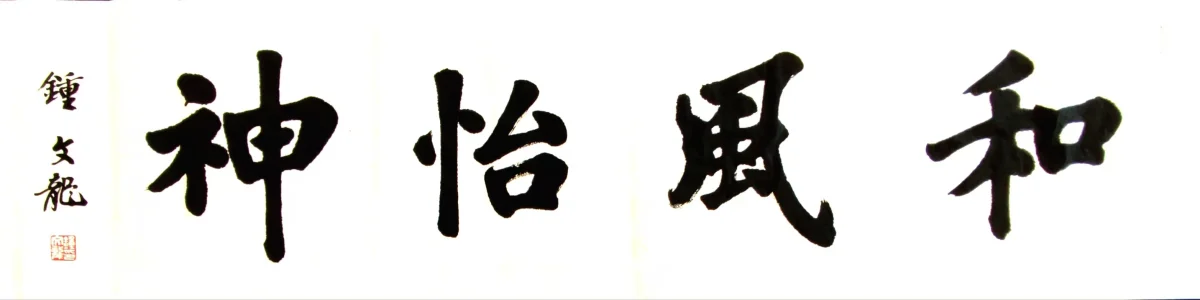 和風怡神
鍾文龍